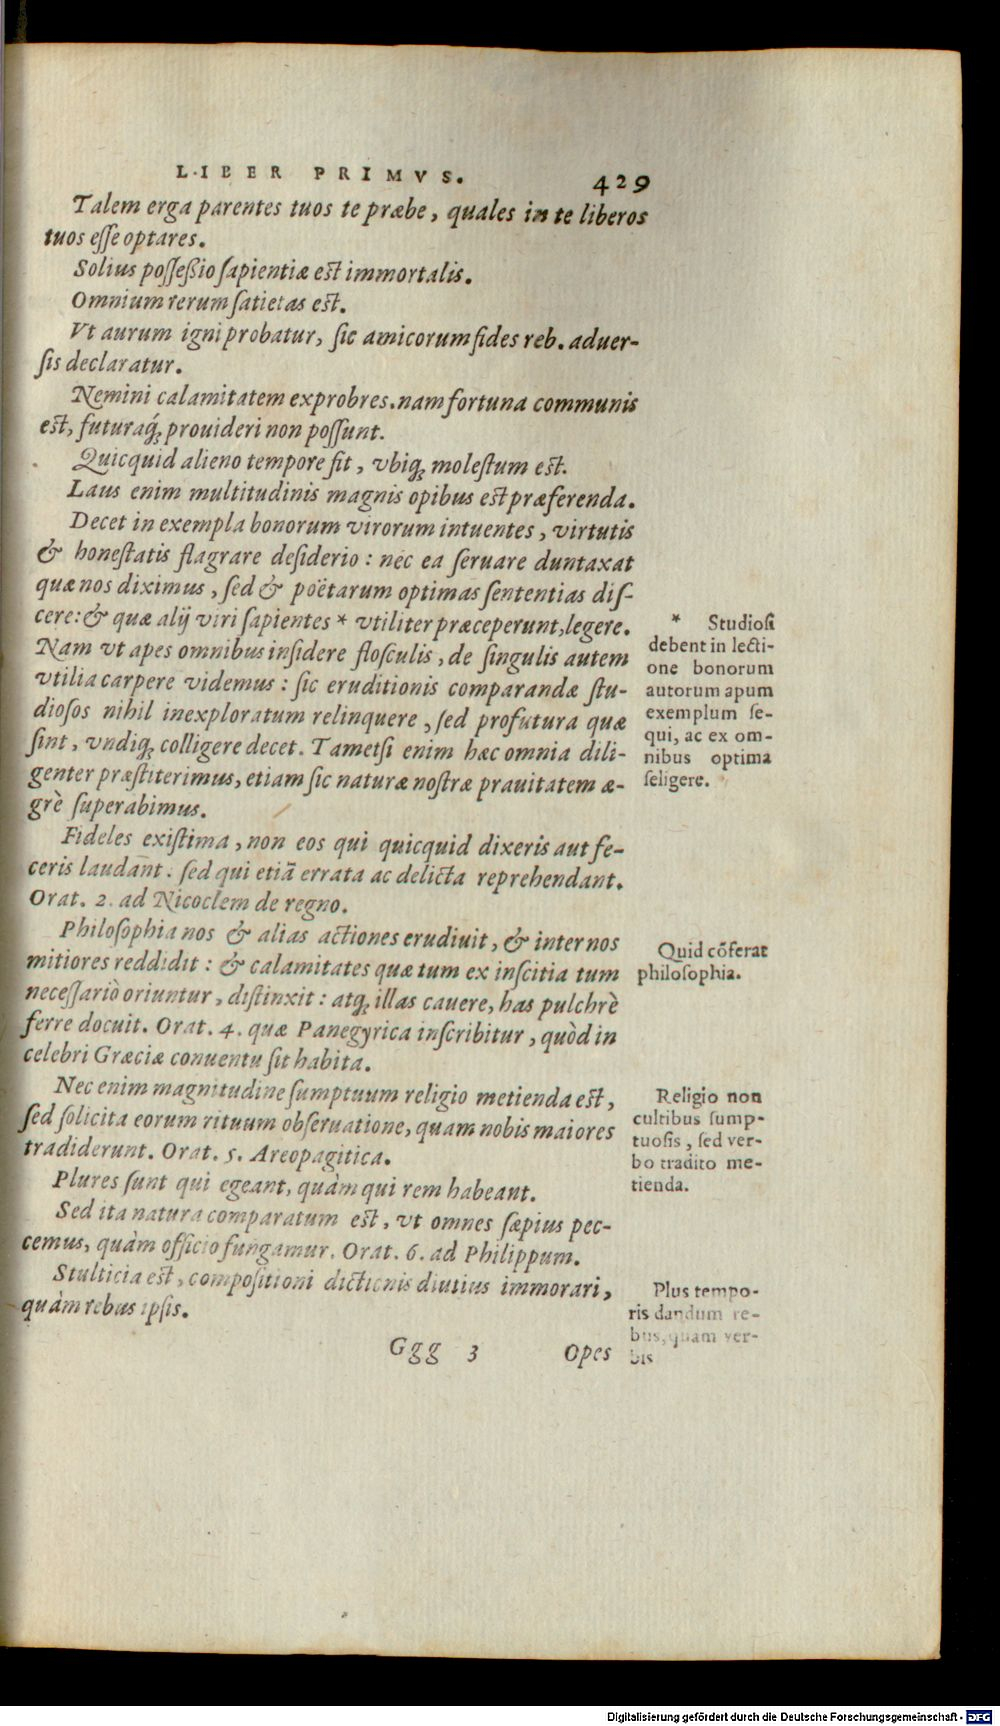 LIBER PRIMVS. 429
Talem erga parentes tuos te præbe, quales in te liberos
tuos eſſe optares.
Solius poſſeßio ſapientiæ eſt immortalis.
Omnium rerum ſatietas eſt.
Vt aurum igni probatur, ſic amicorum fides reb. aduer-
ſis declaratur.
Nemini calamitatem exprobres. nam fortuna communis
eſt, futuraq́; prouideri non poſſunt.
Quicquid alieno tempore fit, vbiq; moleſtum eſt.
Laus enim multitudinis magnis opibus eſt præferenda.
Decet in exempla bonorum virorum intuentes, virtutis
& honeſtatis flagrare deſiderio: nec ea ſeruare duntaxat
quæ nos diximus, ſed & poëtarum optimas ſententias diſ-
cere: & quæ alij viri ſapientes * vtiliter præceperunt, legere.
Nam vt apes omnibus inſidere floſculis, de ſingulis autem
vtilia carpere videmus: ſic eruditionis comparandæ ſtu-
dioſos nihil inexploratum relinquere, ſed profutura quæ
ſint, vndiq; colligere decet. Tametſi enim hæc omnia dili-
genter præſtiterimus, etiam ſic naturæ noſtræ prauitatem æ-
grè ſuperabimus.
* Studioſi
debent in lecti-
one bonorum
autorum apum
exemplum ſe-
qui, ac ex om-
nibus optima
ſeligere.
Fideles exiſtima, non eos qui quicquid dixeris aut fe-
ceris laudant: ſed qui etiã errata ac delicta reprehendant.
Orat. 2. ad Nicoclem de regno.
Philoſophia nos & alias actiones erudiuit, & inter nos
mitiores reddidit: & calamitates quæ tum ex inſcitia tum
neceſſariò oriuntur, diſtinxit: atq; illas cauere, has pulchrè
ferre docuit. Orat. 4. quæ Panegyrica inſcribitur, quòd in
celebri Græciæ conuentu ſit habita.
Quid cõferat
philoſophia.
Nec enim magnitudine ſumptuum religio metienda eſt,
ſed ſolicita eorum rituum obſeruatione, quam nobis maiores
tradiderunt. Orat. 5. Areopagitica.
Religio non
cultibus ſump-
tuoſis, ſed ver-
bo tradito me-
tienda.
Plures ſunt qui egeant, quàm qui rem habeant.
Sed ita natura comparatum eſt, vt omnes ſæpius pec-
cemus, quàm officio fungamur. Orat. 6. ad Philippum.
Stulticia eſt, compoſitioni dictionis diutius immorari,
quàm rebus ipſis.
Plus tempo-
ris dandum re-
bus, quam ver-
bis
Ggg 3 Opes
Digitalisierung gefördert durch die Deutsche Forschungsgemeinschaft - DFG